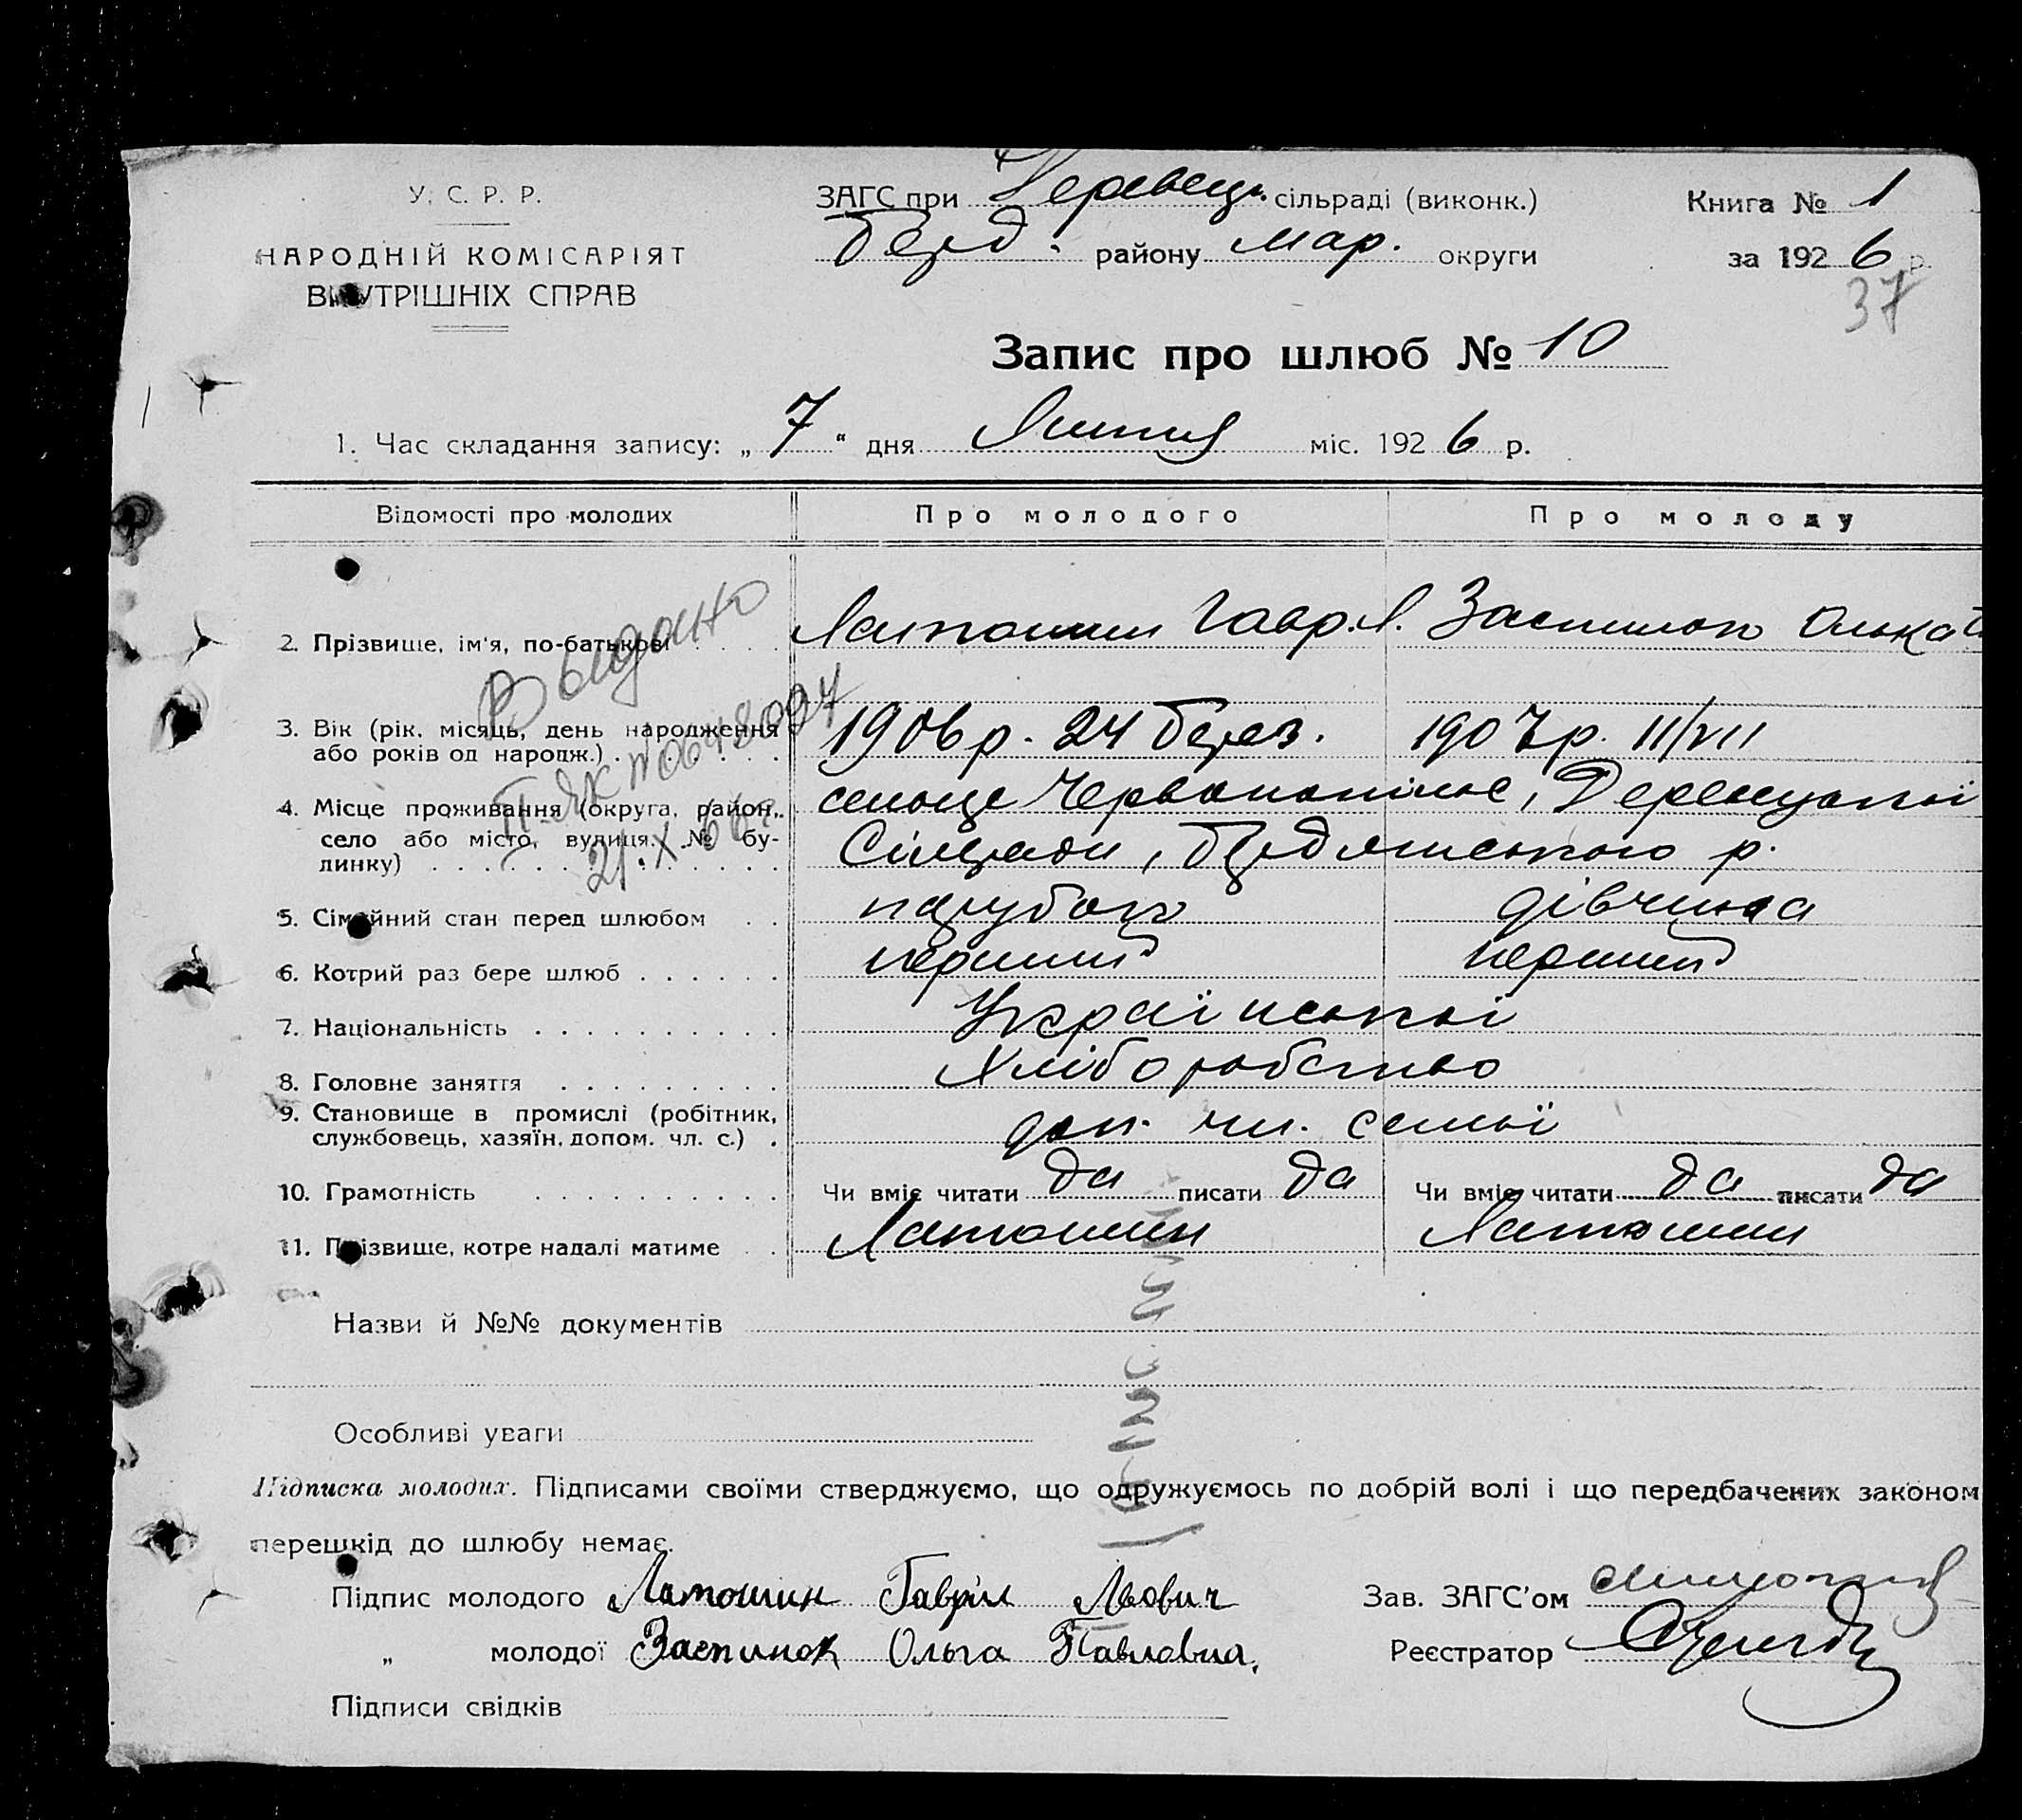 У. С. Р. Р.
НАРОДНІЙ КОМІСАРІЯТ
ВНУТРІШНІХ СПРАВ
ЗАГС при Деревецк. сільраді (виконк.)
Берд. району Мар. округи
Книга № 1
за 1926 р.
37
Запис про шлюб № 10
1. Час складання запису: „7“ дня Липня міс. 1926 р.
Відомості про молодих Про молодого Про молоду
2. Прізвище, ім'я, по-батькові Латошин Гавр. Л. Заспинок Олька
3. Вік (рік, місяць, день народження або років од народж.) 1906 р. 24 берез. 1907 р. 11/VII
4. Місце проживання (округа, район, село або місто, вулиця, № будинку) селище Червонопілле,
Сілради, Бердянського р.
5. Сімейний стан перед шлюбом парубок дівчина
6. Котрий раз бере шлюб перший перший
7. Національність Української
8. Головне заняття Хліборобство
9. Становище в промислі (робітник, службовець, хазяїн, допом. чл. с.) доп. чл. семьї
10. Грамотність Чи вміє читати да писати да Чи вміє читати да писати да
11. Прізвище, котре надалі матиме Латошин Латошин
Выдано
21.X
Назви й №№ документів
Особливі уваги
Підписка молодих. Підписами своїми стверджуємо, що одружуємось по добрій волі і що передбачених законом
перешкід до шлюбу немає.
Підпис молодого Латошин Гавріл Львович
„ молодої Заспинок Ольга Павловна.
Підписи свідків
Зав. ЗАГС'ом
Реєстратор